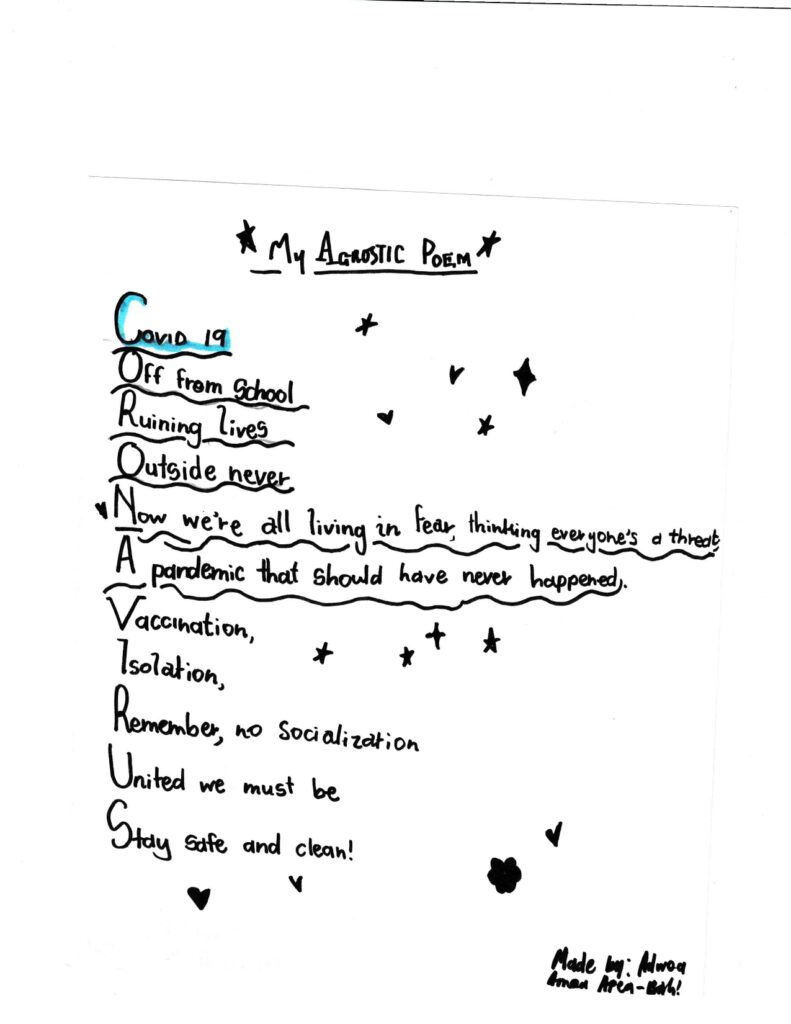 My Agrostic Poem
Covid 19
Off from School
Ruining lives
Outside never
Now we're all living in fear, thinking everyone's a threat,
A pandemic that should have never happened.
Vaccination,
Isolation,
Remember, no Socialization
United we must be
Stay safe and clean!
Made by: Adwoa